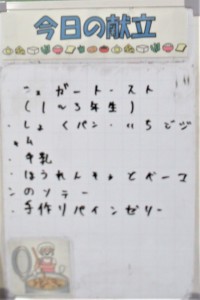 今日の献立
シュガートースト
(1~3年生)
・しょくパン・いちごジ
ャム
・牛乳
・ほうれんそうとベーコ
ンのソテー
・手作りパインゼリー